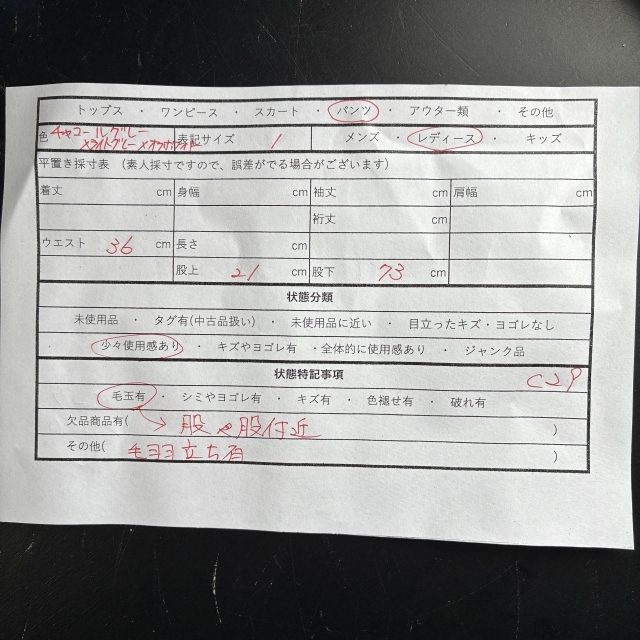 トップス ・ ワンピース ・ スカート ・ パンツ ・ アウター類 ・ その他
色 チャコールグレー 表記サイズ 1 メンズ ・ レディース ・ キッズ
×ライトグレー×オフホワイト
平置き採寸表 (素人採寸ですので、誤差がでる場合がございます)
着丈 cm 身幅 cm 袖丈 cm 肩幅 cm
裄丈 cm
ウエスト 36 cm 長さ cm
股上 21 cm 股下 73 cm
状態分類
未使用品 ・ タグ有(中古品扱い) ・ 未使用品に近い ・ 目立ったキズ・ヨゴレなし
少々使用感あり ・ キズやヨゴレ有 ・全体的に使用感あり ・ ジャンク品
状態特記事項 C29
毛玉有 ・ シミやヨゴレ有 ・ キズ有 ・ 色褪せ有 ・ 破れ有
欠品商品有( → 股や股付近 )
その他( 毛羽立ち有 )